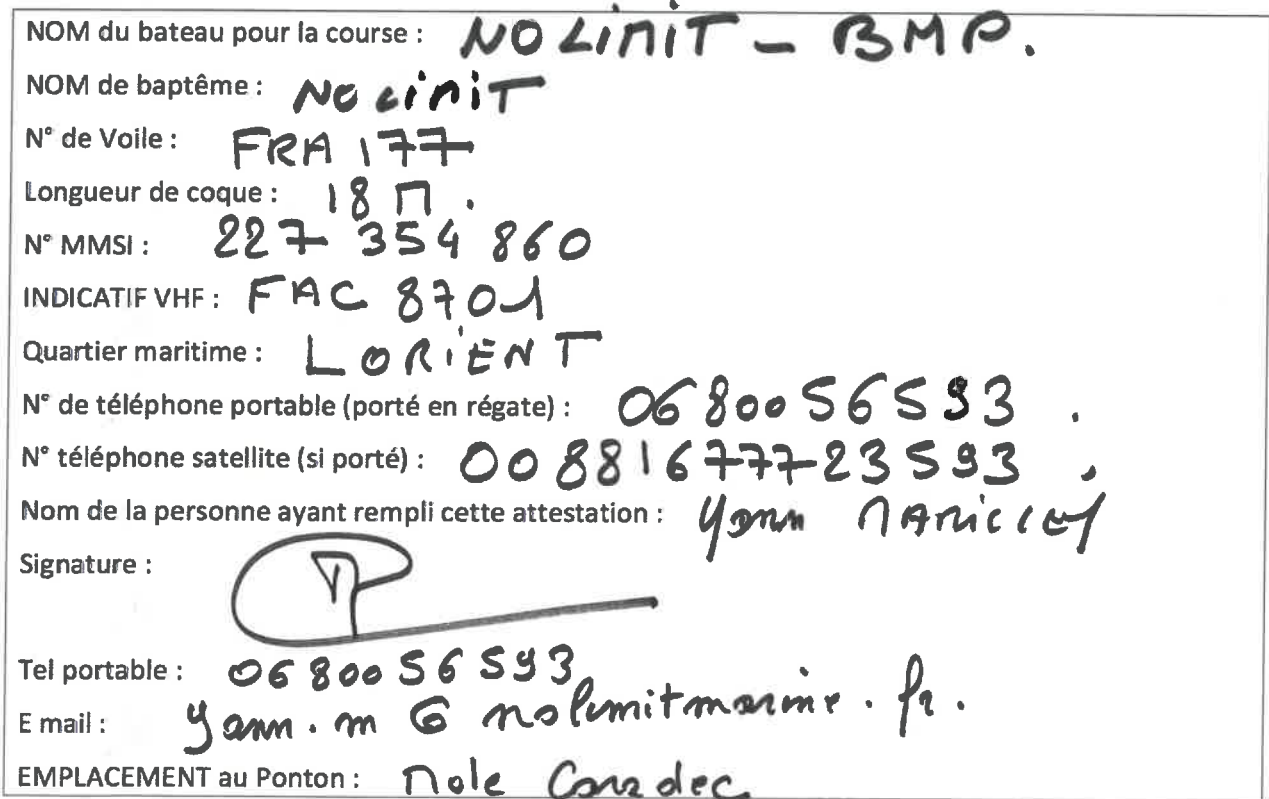 NOM du bateau pour la course : NO LiMiT - BMP.
NOM de baptême : NO LiMiT
N° de Voile : FRA 177
Longueur de coque : 18 M.
N° MMSI : 227 354 860
INDICATIF VHF : FAC 8701
Quartier maritime : LORiENT
N° de téléphone portable (porté en régate) : 06 800 56593.
N° téléphone satellite (si porté) : 00 88 16 777 23 593.
Nom de la personne ayant rempli cette attestation : Yann
Signature :
Tel portable : 06 800 56 593
E mail : yann.m @ nolimitmarine.fr.
EMPLACEMENT au Ponton : Mole